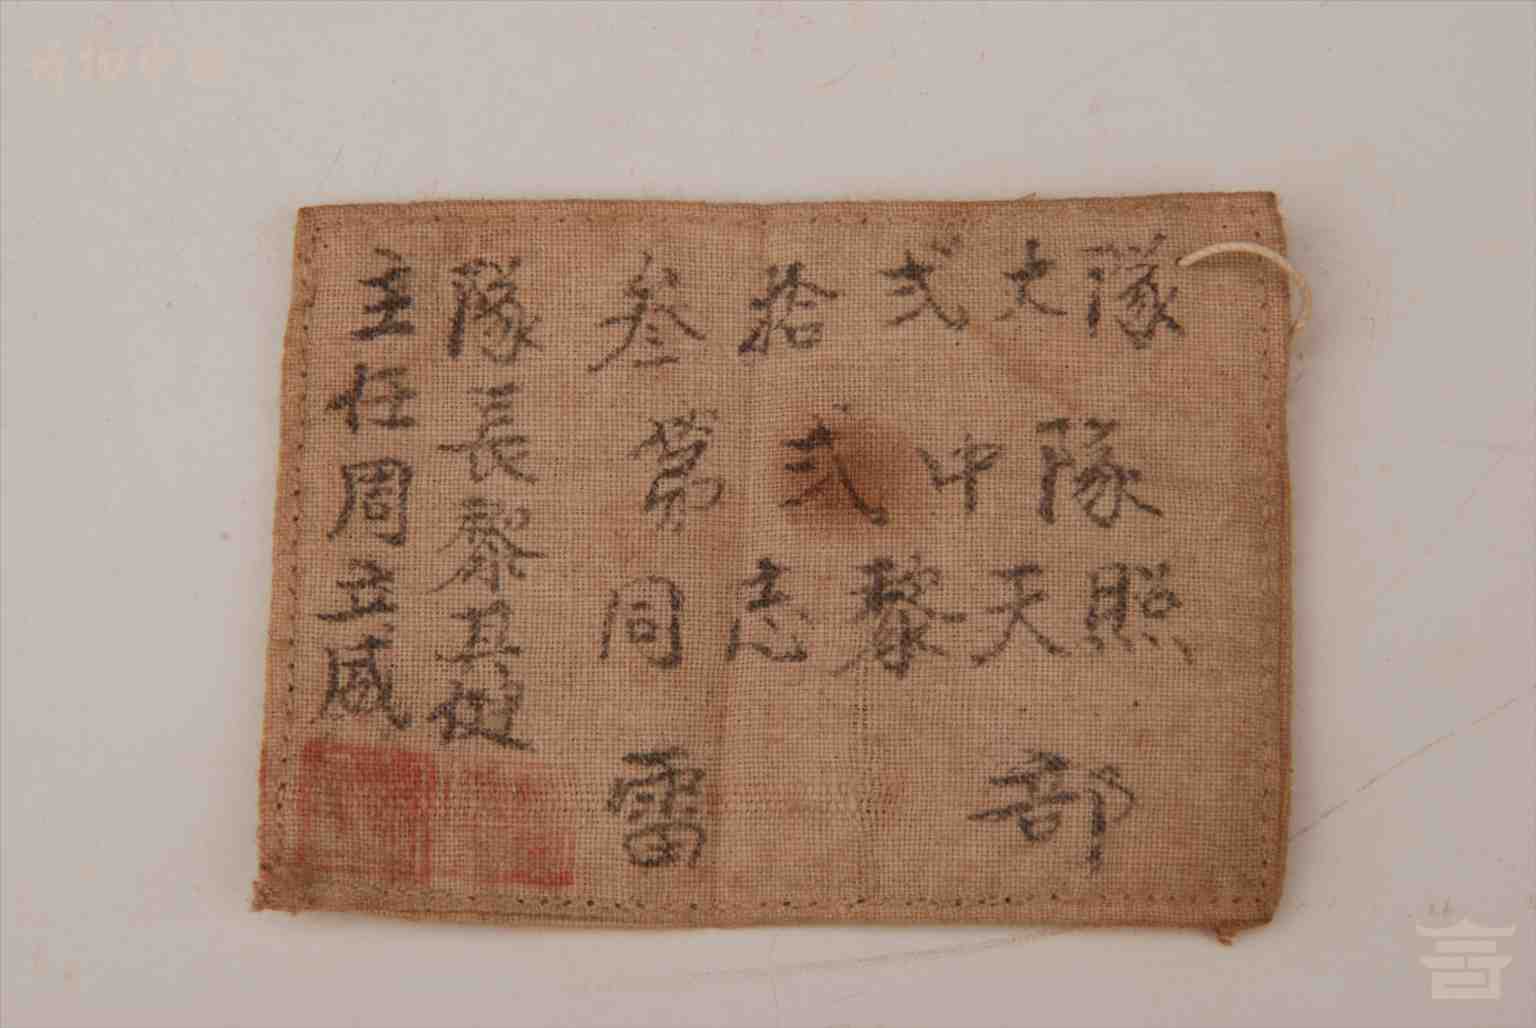 叁拾弍大隊
第弍中隊
同志黎天照
雷部
隊長黎其健
主任周立威